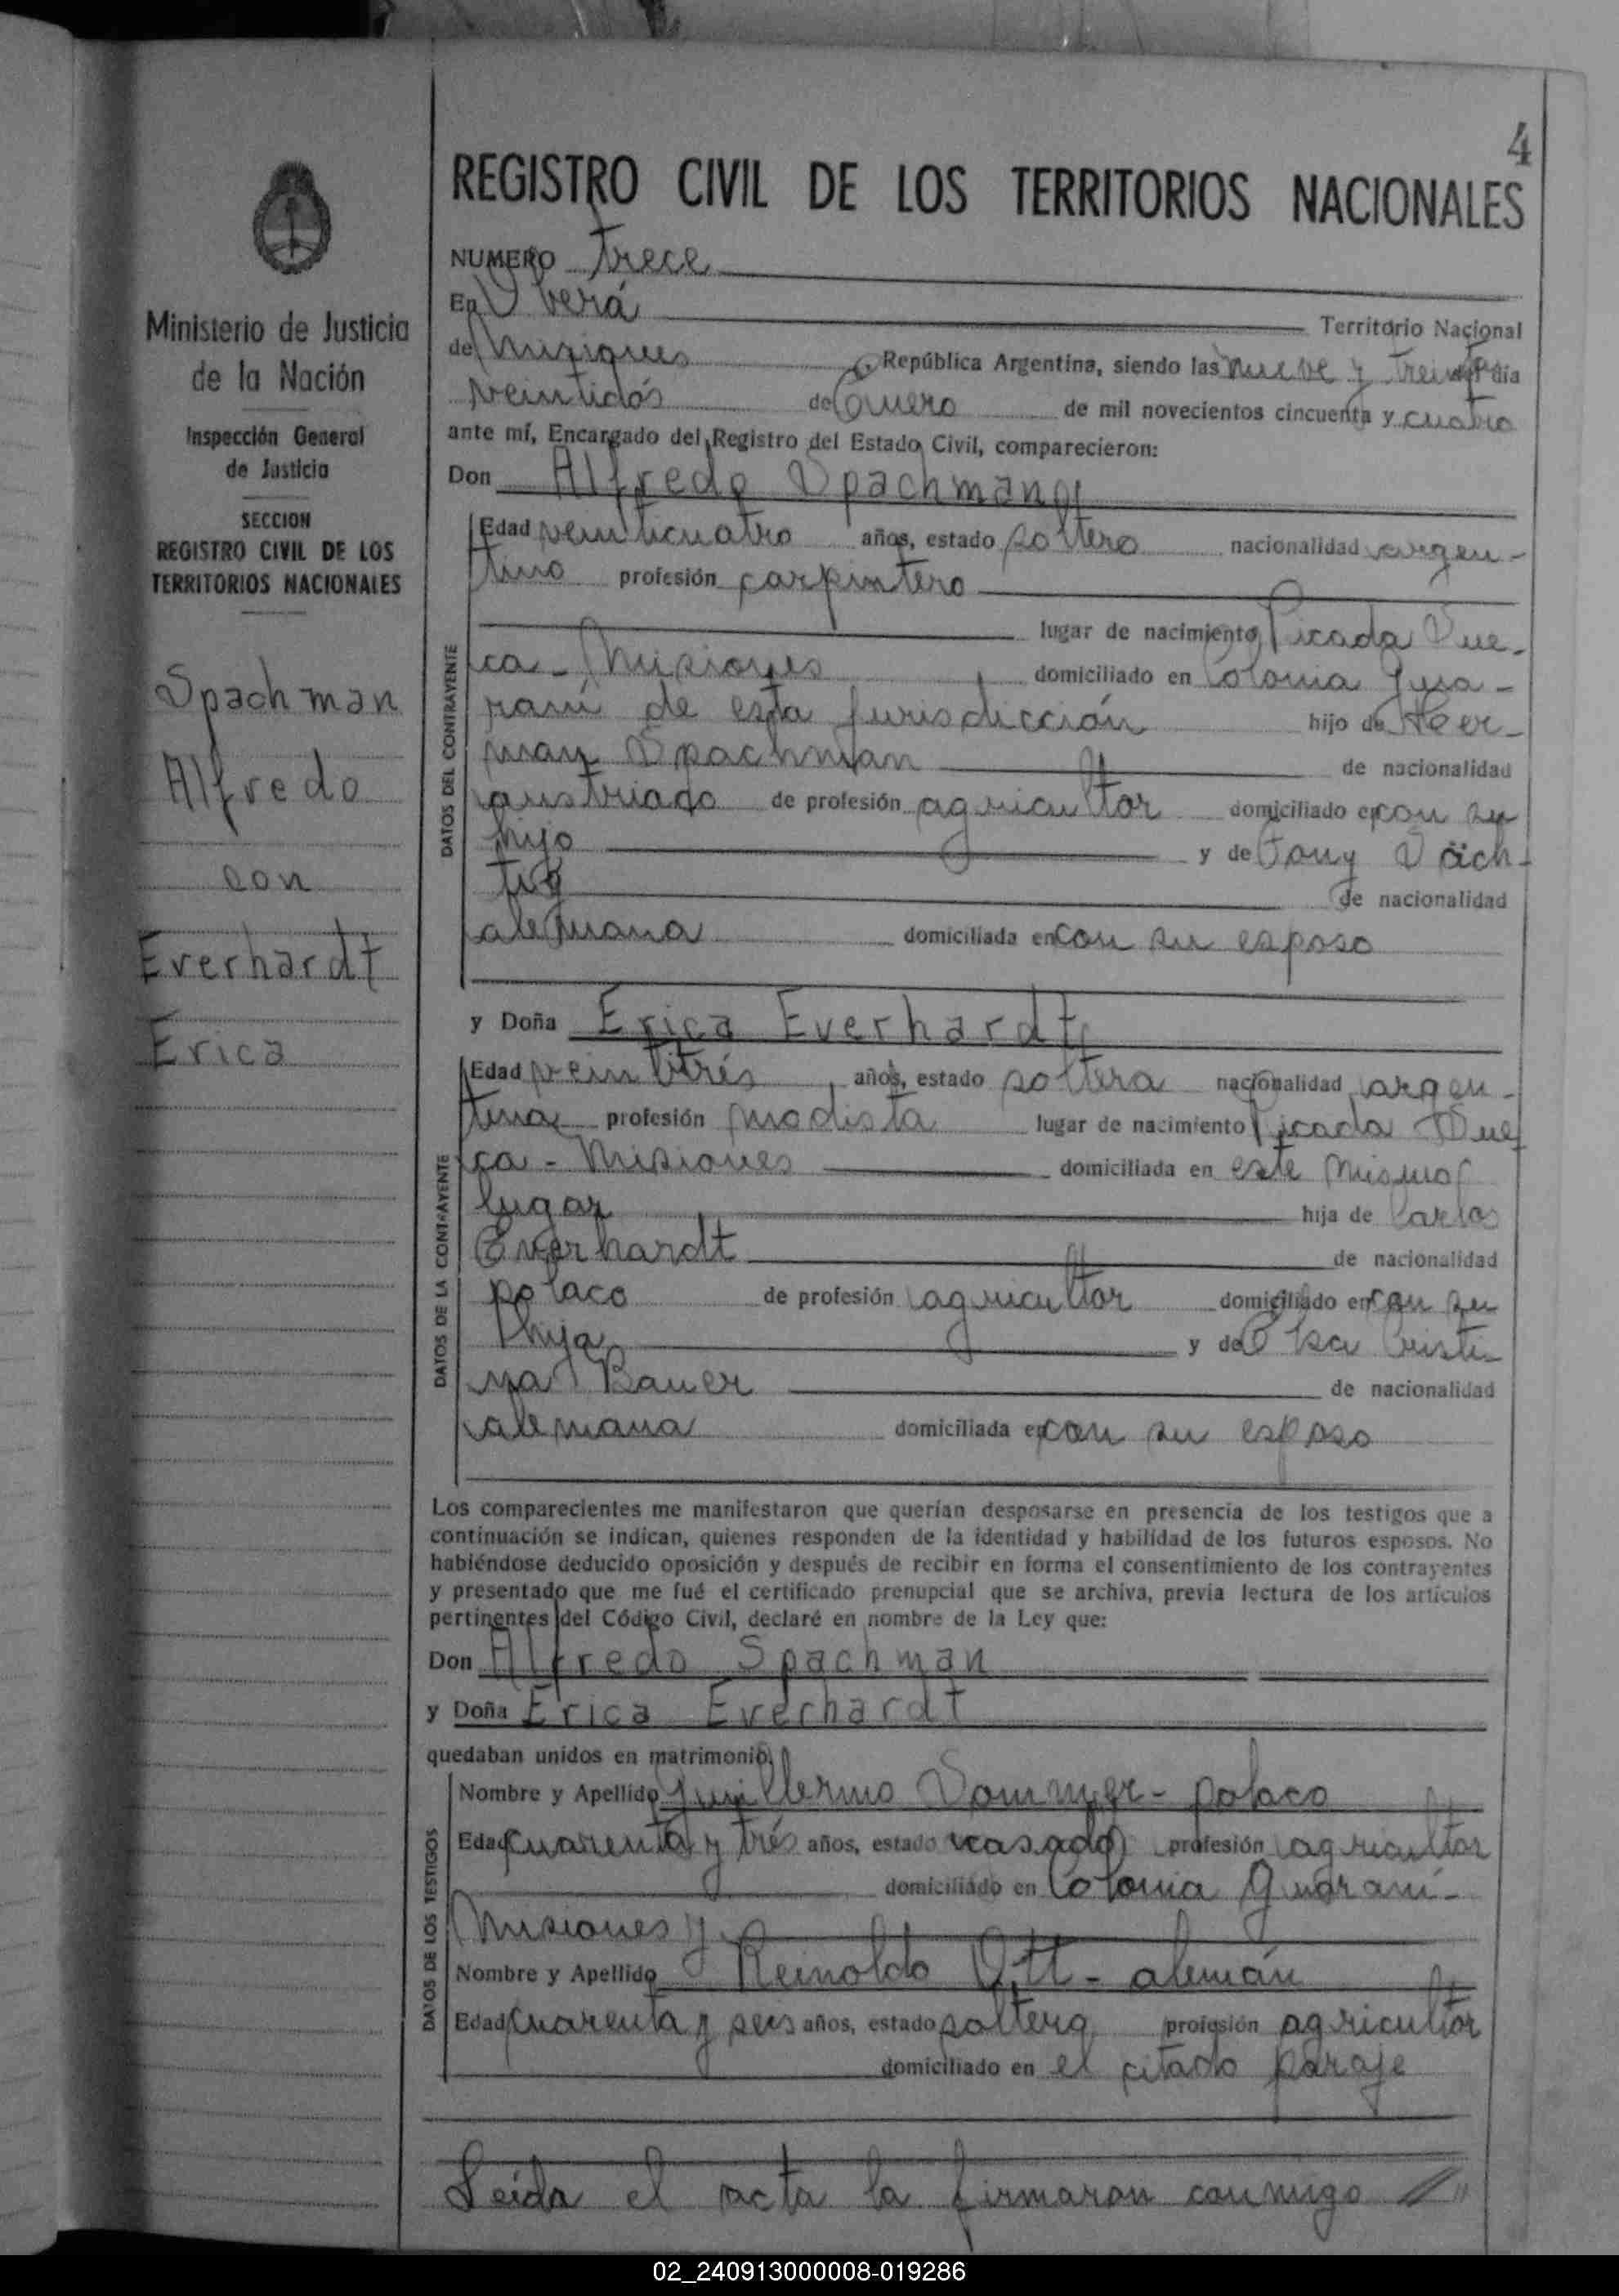 4
REGISTRO CIVIL DE LOS TERRITORIOS NACIONALES
NUMERO trece
En Oberá Territorio Nacional
de Misiones, República Argentina, siendo las nueve y treinta del día
veintidós de Enero de mil novecientos cincuenta y cuatro
ante mí, Encargado del Registro del Estado Civil, comparecieron:
Don Alfredo Spachman
Edad veinticuatro años, estado soltero nacionalidad argen-
tino profesión carpintero
lugar de nacimiento Picada Sue-
ca - Misiones domiciliado en Colonia Gua-
raní de esta jurisdicción hijo de Her-
man Spachman de nacionalidad
austriaco de profesión agricultor domiciliado en con su
hijo y de Tony Säch-
tig de nacionalidad
alemana domiciliada en con su esposo
y Doña Erica Everhardt
Edad veintitrés años, estado soltera nacionalidad argen-
tina profesión modista lugar de nacimiento Picada Sue
ca - Misiones domiciliada en este mismo
lugar hija de Carlos
Everhardt de nacionalidad
polaco de profesión agricultor domiciliado en con su
hija y de Elsa Cristi-
na Bauer de nacionalidad
alemana domiciliada en con su esposo
Los comparecientes me manifestaron que querían desposarse en presencia de los testigos que a
continuación se indican, quienes responden de la identidad y habilidad de los futuros esposos. No
habiéndose deducido oposición y después de recibir en forma el consentimiento de los contrayentes
y presentado que me fué el certificado prenupcial que se archiva, previa lectura de los artículos
pertinentes del Código Civil, declaré en nombre de la Ley que:
Don Alfredo Spachman
y Doña Erica Everhardt
quedaban unidos en matrimonio.
Nombre y Apellido Guillermo Sommer - polaco
Edad cuarenta y trés años, estado casado profesión agricultor
domiciliado en Colonia Guaraní -
Misiones y
Nombre y Apellido Reinoldo Ott - alemán
Edad cuarenta y seis años, estado soltero profesión agricultor
domiciliado en el citado paraje
Leída el acta la firmaron conmigo //"
DATOS DEL CONTRAYENTE
DATOS DE LA CONTRAYENTE
DATOS DE LOS TESTIGOS
Ministerio de Justicia
de la Nación
Inspección General
de Justicia
SECCION
REGISTRO CIVIL DE LOS
TERRITORIOS NACIONALES
Spachman
Alfredo
con
Everhardt
Erica
02_240913000008-019286